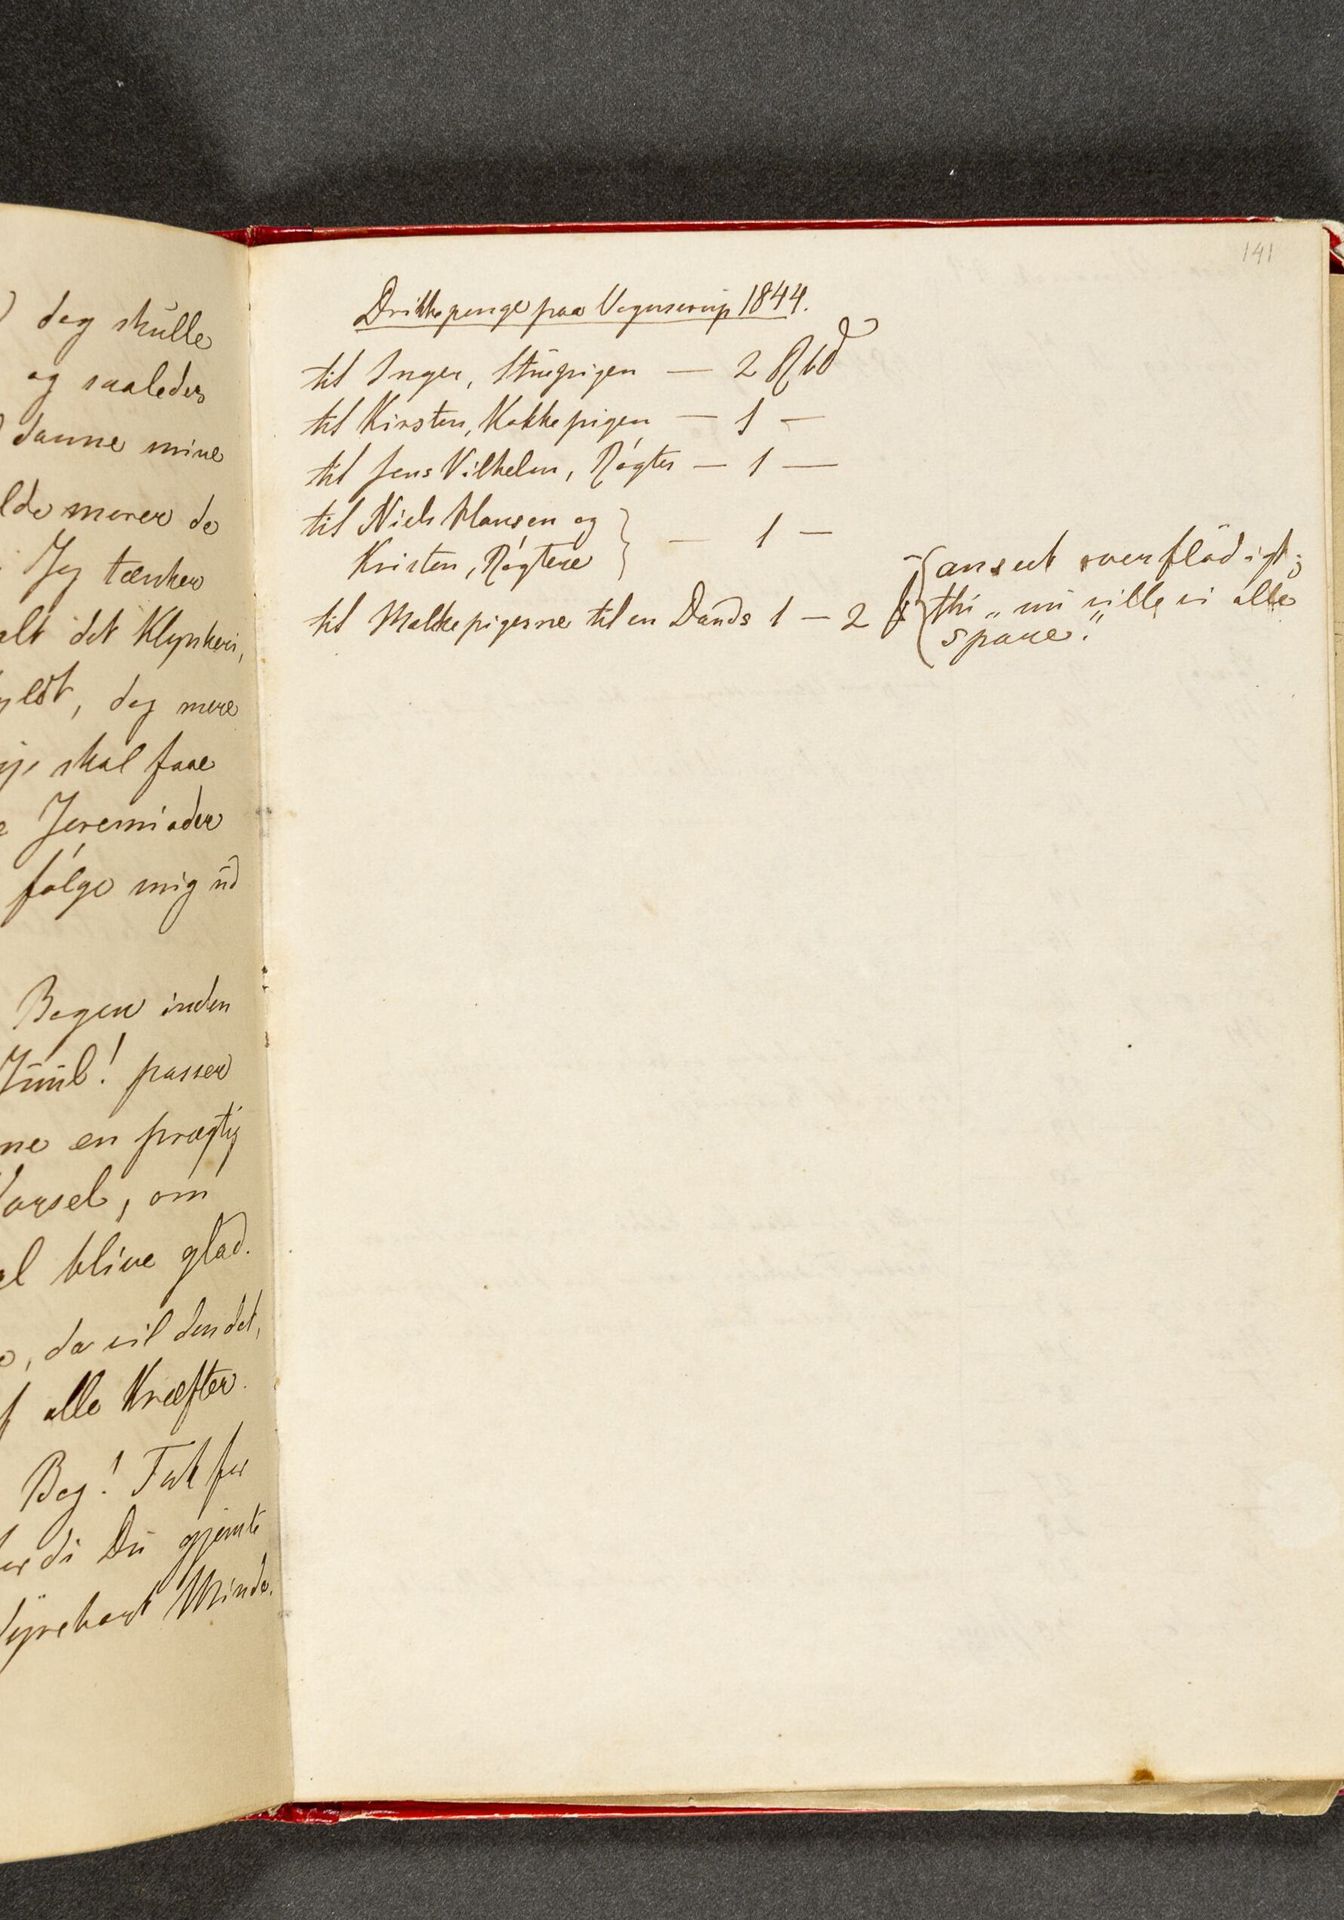 dog skulle
og saaledes
danne mine
merer de
Jeg tænker
alt det Klynkeri,
dog mere
skal faae
Jeremiader
følge mig ud
Bogen inden
Juul! passer
en prægtig
om
blive glad.
da vil den det,
alle Kræfter.
Bog! Tak for
Du gjemte
dyrebart Minde.
141
Drikkepenge paa Vognserup 1844.
til Inger, Stuepigen — 2 Rbd
til Kirsten, Kokkepigen — 1 —
til Jens Vilhelm, Røgter — 1 —
til Niels Hansen og
Kristen, Røgtere } — 1 —
til Malkepigerne til en Dands 1 — 2
{ anseet overflødigt;
thi „nu ville vi alle
spare."